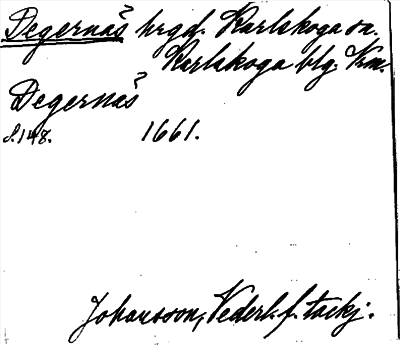 Degernäs hrgd. Karlskoga sn.
Karlskoga blg. Vrm.
Degernäs
s. 148. 1661.
Johansson, Vederl. f. tackj.